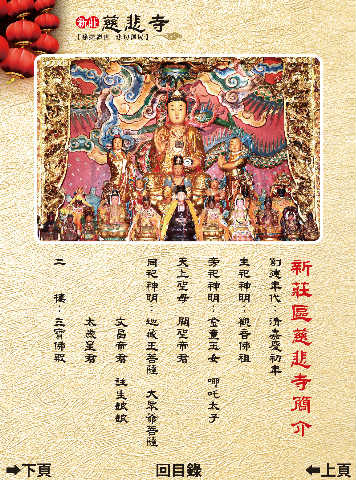 新莊 慈悲寺
新莊區慈悲寺簡介
創建年代 清嘉慶初年
主祀神明：觀音佛祖
旁祀神明 金童玉女 哪吒太子
天上聖母 關聖帝君
同祀神明 地藏王菩薩 大眾爺菩薩
文昌帝君 註生娘娘
太歲星君
二 樓：三寶佛殿
➡下頁
回目錄
⬅上頁